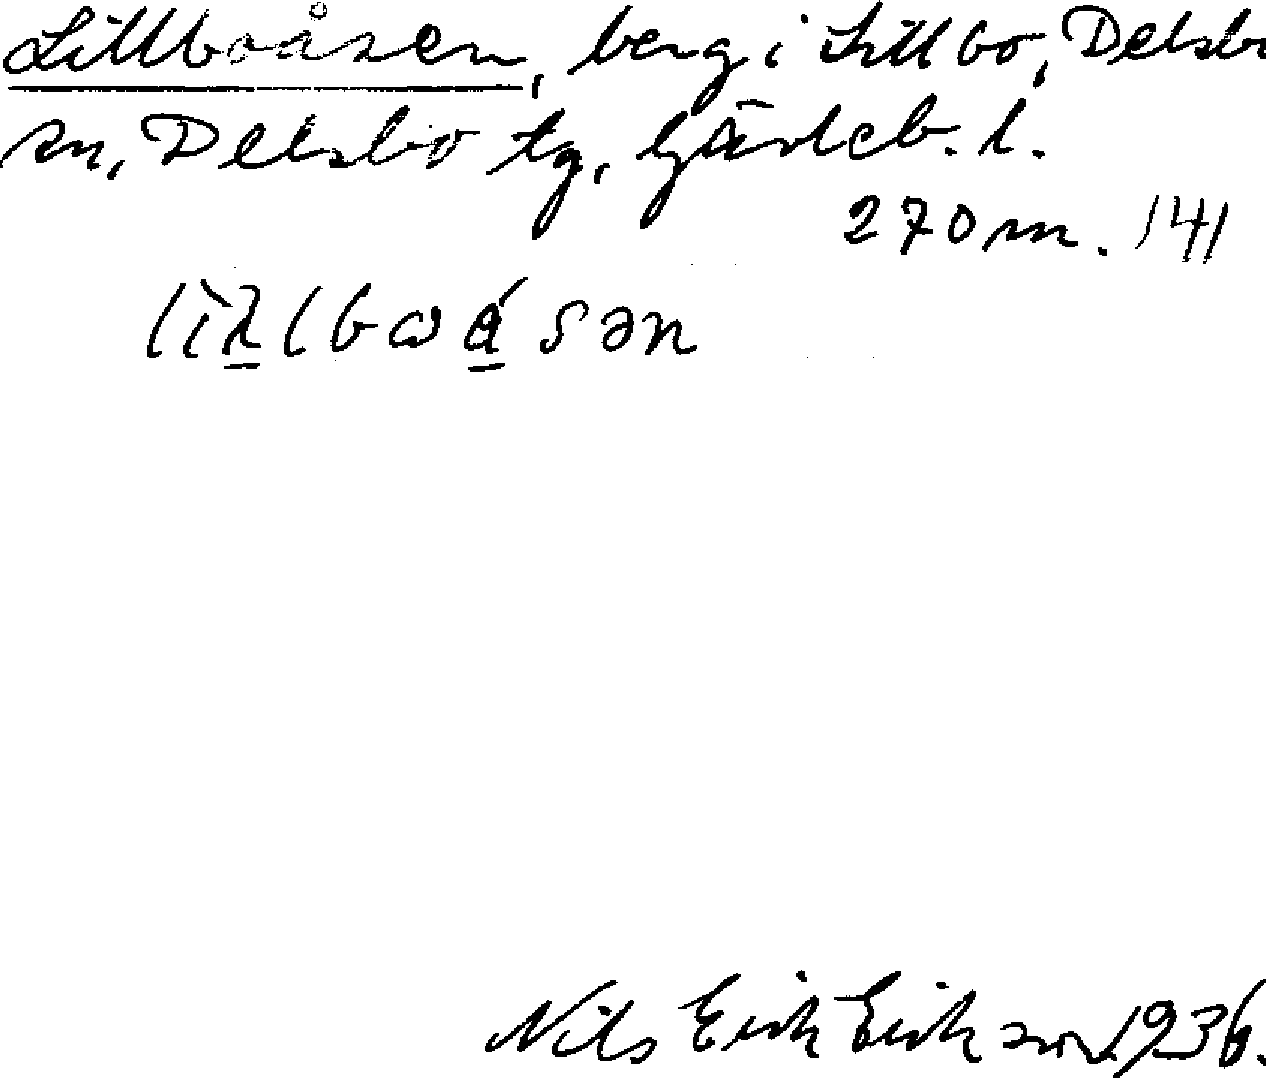 Lillboåsen, berg i Lillbo, Delsbo
sn, Delsbo tg, Gävleb. l.
270 m. 141
lìḷlbωá̱sən
Nils Erik Eriksson 1936.